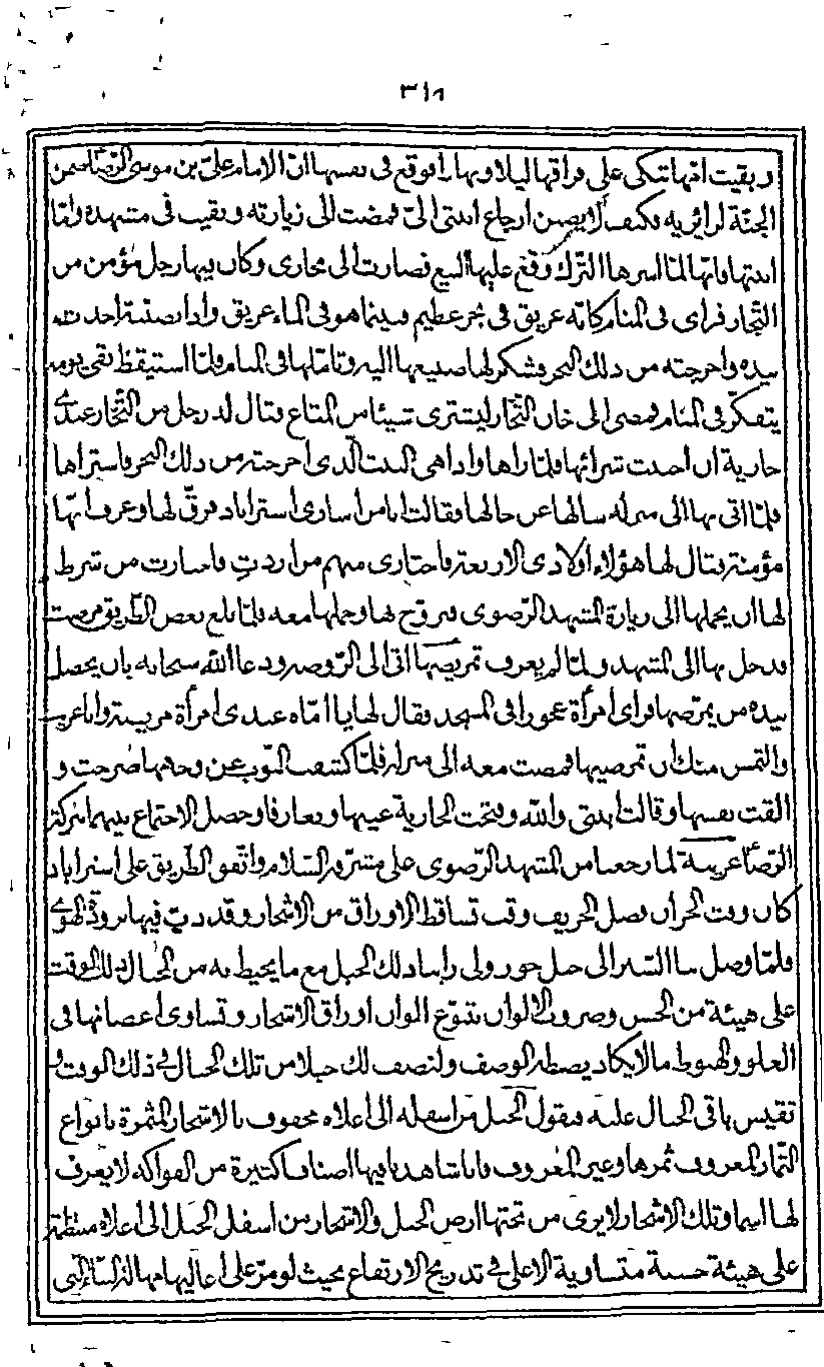 ٣١٨
وبقيت امّها تبكى على فراقها ليلا ونهارا فوقع فى نفسها انّ الامام علىّ بن موسى الرّضا ضمن
الجنّة لزائريه فكيف لا يضمن ارجاع ابنتى الىّ فمضت الى زيارته وبقيت فى مشهده وامّا
ابنتها فانّها لمّا اسرها التّرك وقع عليها البيع فصارت الى بخارى وكان فيها رجل مؤمن من
التّجار فراى فى المنام كانّه غريق فى بحر عظيم فبينما هو فى الماء غريق واذا بصبيّة اخذت
بيده واخرجته من ذلك البحر فشكر لها صنيعها اليه وتامّلها فى المنام فلمّا استيقظ بقى يومه
يتفكّر فى المنام فمضى الى خان التّجار ليشترى شيئا من المتاع فقال له رجل من التّجار عندى
جارية ان احببت شرائها فلمّا راها واذا هى البنت الّذى اخرجته من ذلك البحر فاشتراها
فلمّا اتى بها الى منزله سالها عن حالها فقالت انا من اسارى استراباد فرقّ لها وعرف انّها
مؤمنة فقال لها هؤلاء اولادى الاربعة فاختارى منهم من اردت فاختارت من شرط
لها ان يحملها الى زيارة المشهد الرّضوى فتزوّج بها وحملها معه فلمّا بلغ بعض الطّريق مرضت
فدخل بها الى المشهد ولمّا لم يعرف تمريضها اتى الى الرّوضة ودعا اللّه سبحانه بان يحصل
بيده من يمرّضها فراى امرأة عجوزا فى المسجد فقال لها يا امّاه عندى امرأة مريضة وانا غريب
والتمس منك ان تمرضيها فمضت معه الى منزله فلمّا كشف الثوب عن وجهها صرخت و
القت نفسها وقالت ابنتى واللّه وفتحت الجارية عينيها وتعارفا وحصل الاجتماع بينهما ببركة
الرّضا غريبة لمّا رجعنا من المشهد الرّضوى على مشرّفه السّلام واتّفق الطّريق على استراباد
كان وقت الخزان فصل الخريف وقت تساقط الاوراق من الاشجار وقد دبّت فيها برودة الهوى
فلمّا وصل بنا السّير الى جبل جوز ولى راينا ذلك الجبل مع ما يحيط به من الجبال بذلك الوقت
على هيئة من الحسن وضروب الالوان بتنوّع الوان اوراق الاشجار وتساوى اغصانها فى
العلو والهبوط ما لا يكاد يضبطه الوصف ولنصف لك جبلا من تلك الجبال فى ذلك الوقت و
تقيس باقى الجبال عليه فنقول الجبل من اسفله الى اعلاه محفوف بالاشجار المثمرة بانواع
الثّمار المعروف ثمرها وغير المعروف فانا شاهدنا فيها اصنافا كثيرة من الفواكه لا يعرف
لها اسما وتلك الاشجار لا يرى من تحتها ارض الجبل والاشجار من اسفل الجبل الى اعلاه منتظمة
على هيئة حسنة متساوية الاعلى فى تدريج الارتفاع بحيث لو مرّ على اعاليها مهما البنّاء الّتى